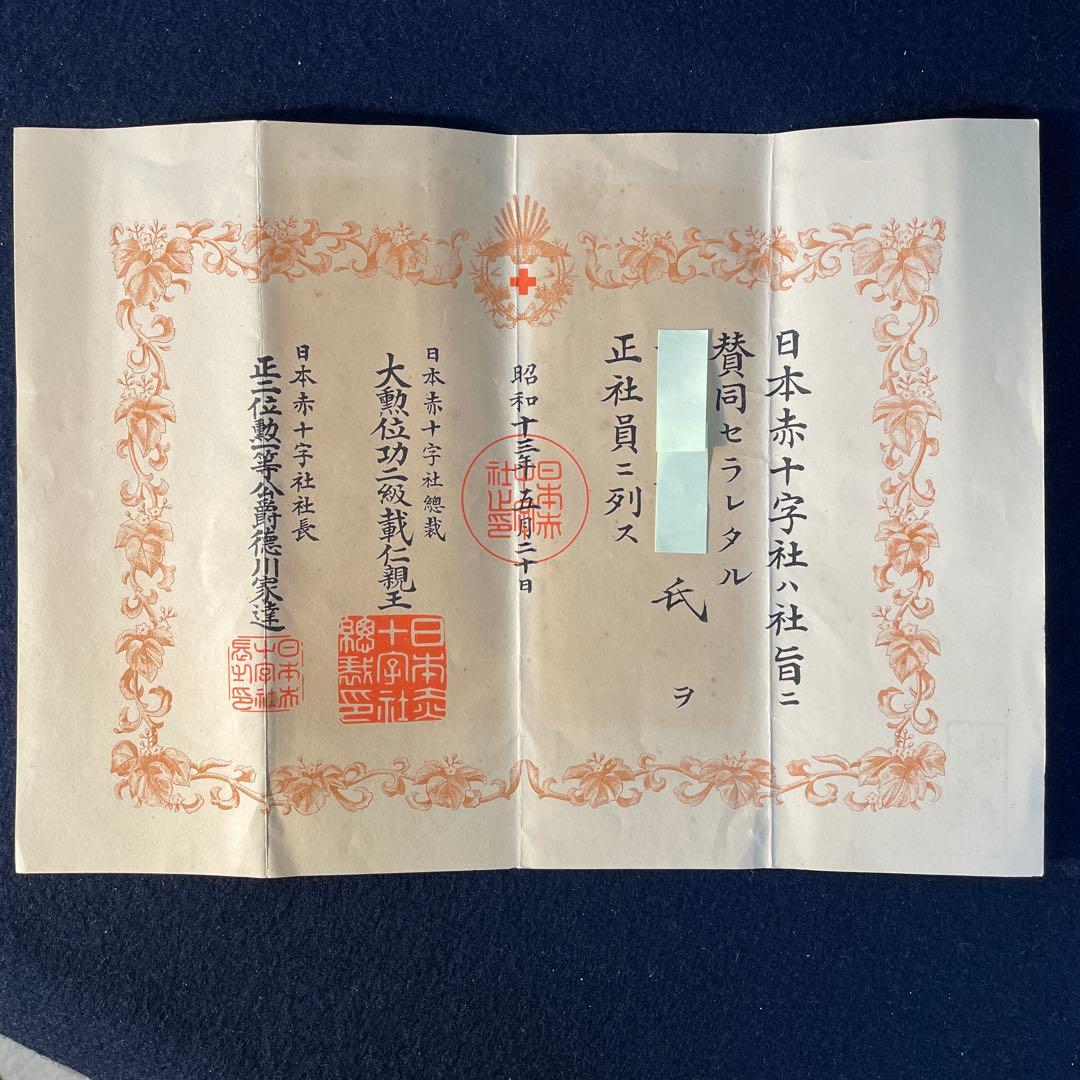 日本赤十字社ハ社旨ニ
賛同セラレタル
氏ヲ
正社員ニ列ス
昭和十三年五月二十日
日本赤十字社總裁
大勲位功二級載仁親王
日本赤十字社社長
正二位勲一等公爵德川家達
日本赤
十字社
總裁印
日本赤
十字社
長之印